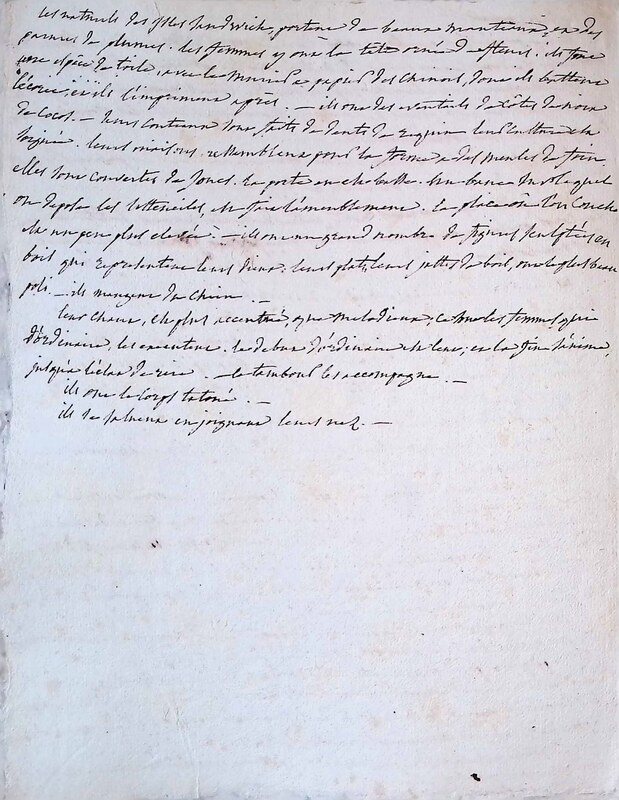 Les naturels des Isles Sandwick, portent de beaux manteaux, et des
parures de plumes. les femmes y ont la tete orné de fleurs. ils font
une espèce de toile, avec le murier a papier des Chinois, dont ils battent
l'écorce, et ils l'impriment après. — ils ont des eventails de côtes de noix
de Cocos. — leurs couteaux sont faits de dents de requin leur culture est
soignée. leurs maisons ressemblent pour la forme a des meules de foin
elles sont couvertes de joncs. la porte en est basse. un banc sur lequel
on depose les ustenciles, en fait l'ameublement. la place où l'on couche
est un peu plus elevée. — ils ont un grand nombre de figures sculptées en
bois qui représentent leurs dieux, leurs plats, leurs jattes de bois, ont le plus beau
poli. — ils mangent du chien. —
leur chant, est plus accentué, que melodieux, ce sont les femmes qui
d'ordinaire, les executent. le debut d'ordinaire est lent, et la fin s'anime,
jusqu'a l'éclat de rire. — le tambour les accompagne. —
ils ont le corps tatoué. —
ils se saluent en joignant leurs nez. —